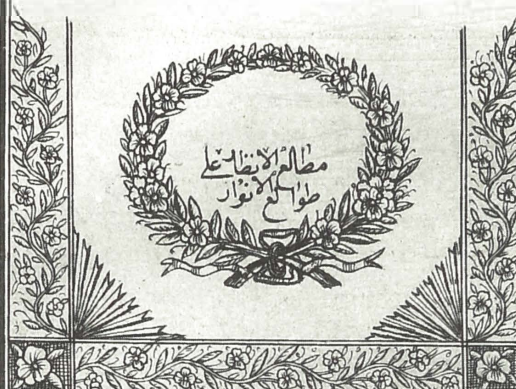 مطالع الانظار على
طوالع الانوار